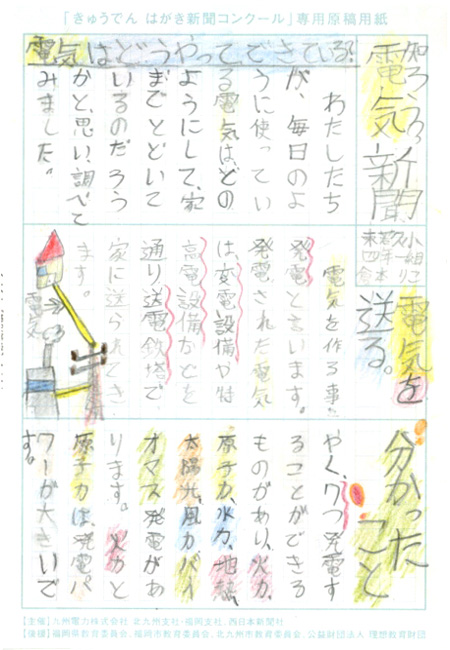 「きゅうでん はがき新聞コンクール」専用原稿用紙
知ろう
電気新聞
電気はどうやってできている?
わたしたち
が、毎日のよ
うに使ってい
る電気は、どの
ようにして、家
までとどいて
いるのだろう
かと、思い、調べて
みました。
電気を
送る。
電気を作る事を
発電と言います。
発電された電気
は、変電設備や特
高電設備などを
通り送電鉄塔で
家に送られてき
ます。
電気
分かった
こと
やく、7つ発電す
ることができる
ものがあり、火力、
原子力、水力、地熱、
太陽光、風力、バイ
オマス発電があ
ります。火力と
原子力は、発電パ
ワーが大きいで
す。
【主催】九州電力株式会社 北九州支社・福岡支社、西日本新聞社
【後援】福岡県教育委員会、福岡市教育委員会、北九州市教育委員会、公益財団法人 理想教育財団